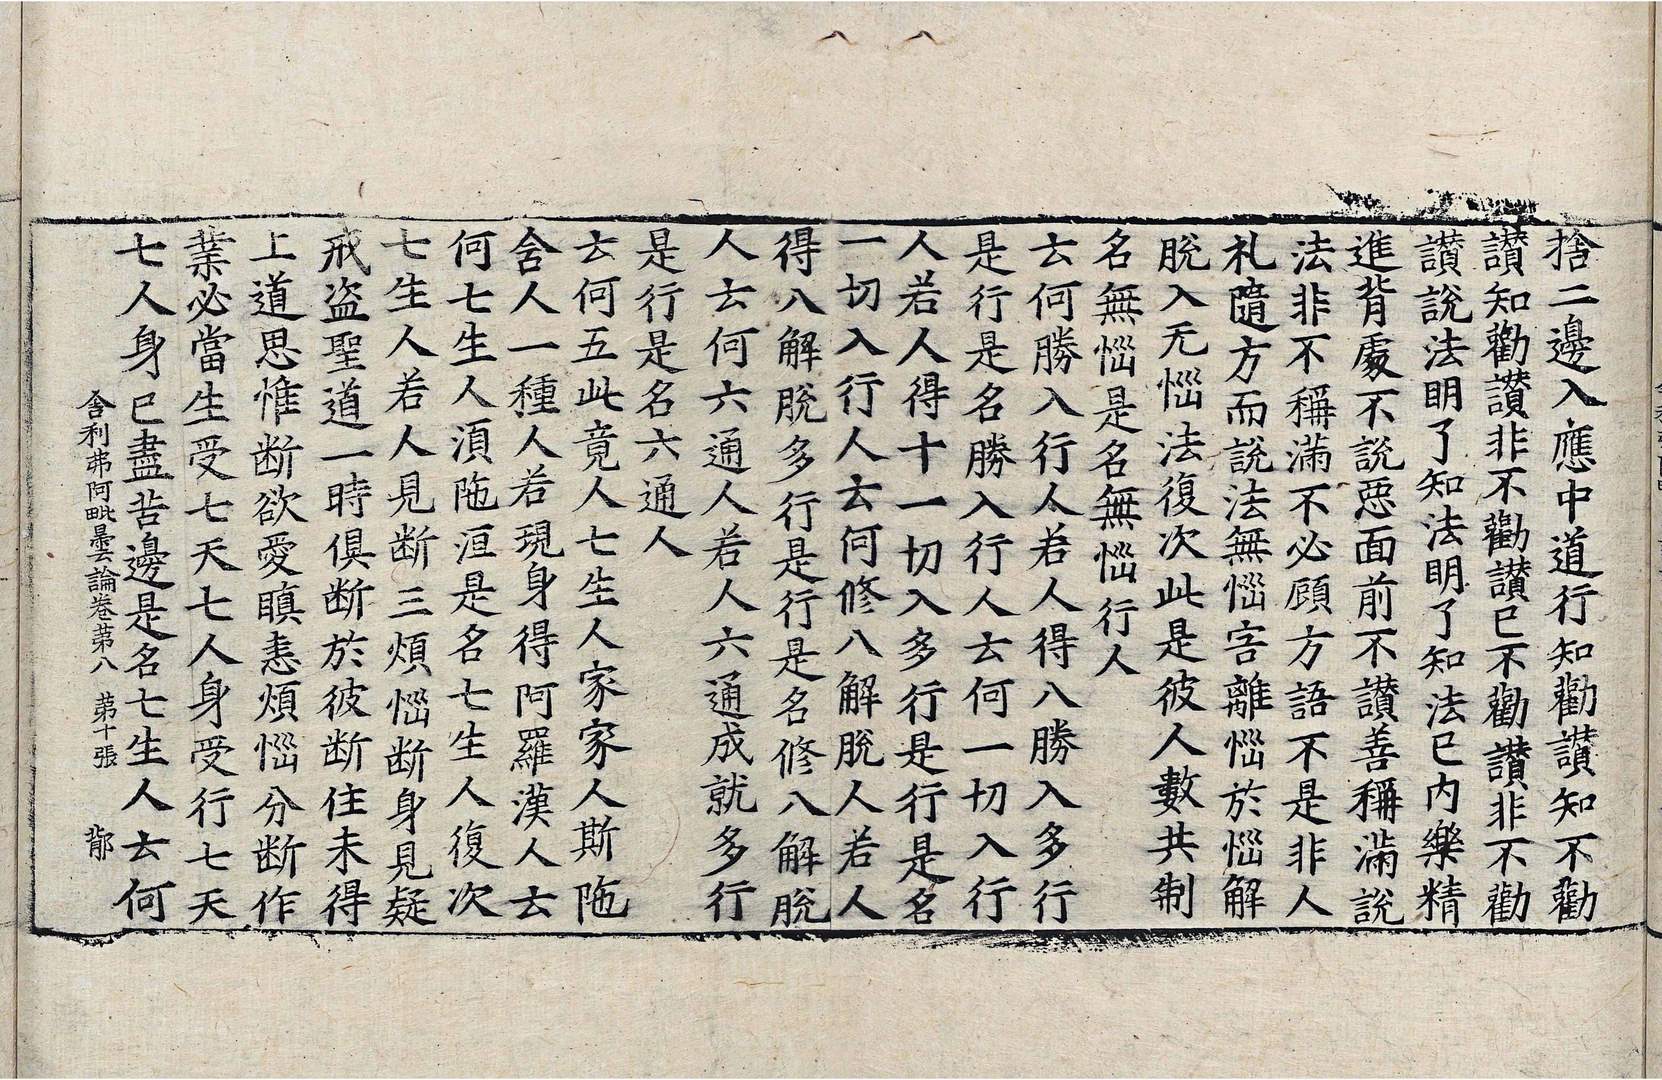 捨二邊入應中道行知勸讃知不勸
讃知勸讃非不勸讃已不勸讃非不勸
讃說法明了知法明了知法已內樂精
進背處不說惡面前不讃善稱滿說
法非不稱滿不必顧方語不是非人
礼隨方而說法無惱害離惱於惱解
脫入无惱法復次此是彼人數共制
名無惱是名無惱行人
去何勝入行人若人得八勝入多行
是行是名勝入行人去何一切入行
人若人得十一切入多行是行是名
一切入行人去何修八解脫人若人
得八解脫多行是行是名修八解脫
人去何六通人若人六通成就多行
是行是名六通人
去何五此竟人七生人家家人斯陁
含人一種人若現身得阿羅漢人去
何七生人湏陁洹是名七生人復次
七生人若人見断三煩惱断身見疑
戒盗聖道一時俱断於彼断住未得
上道思惟断欲愛瞋恚煩惱分断作
業必當生受七天七人身受行七天
七人身已盡苦邊是名七生人去何
舍利弗阿毗曇論卷苐八 苐十張